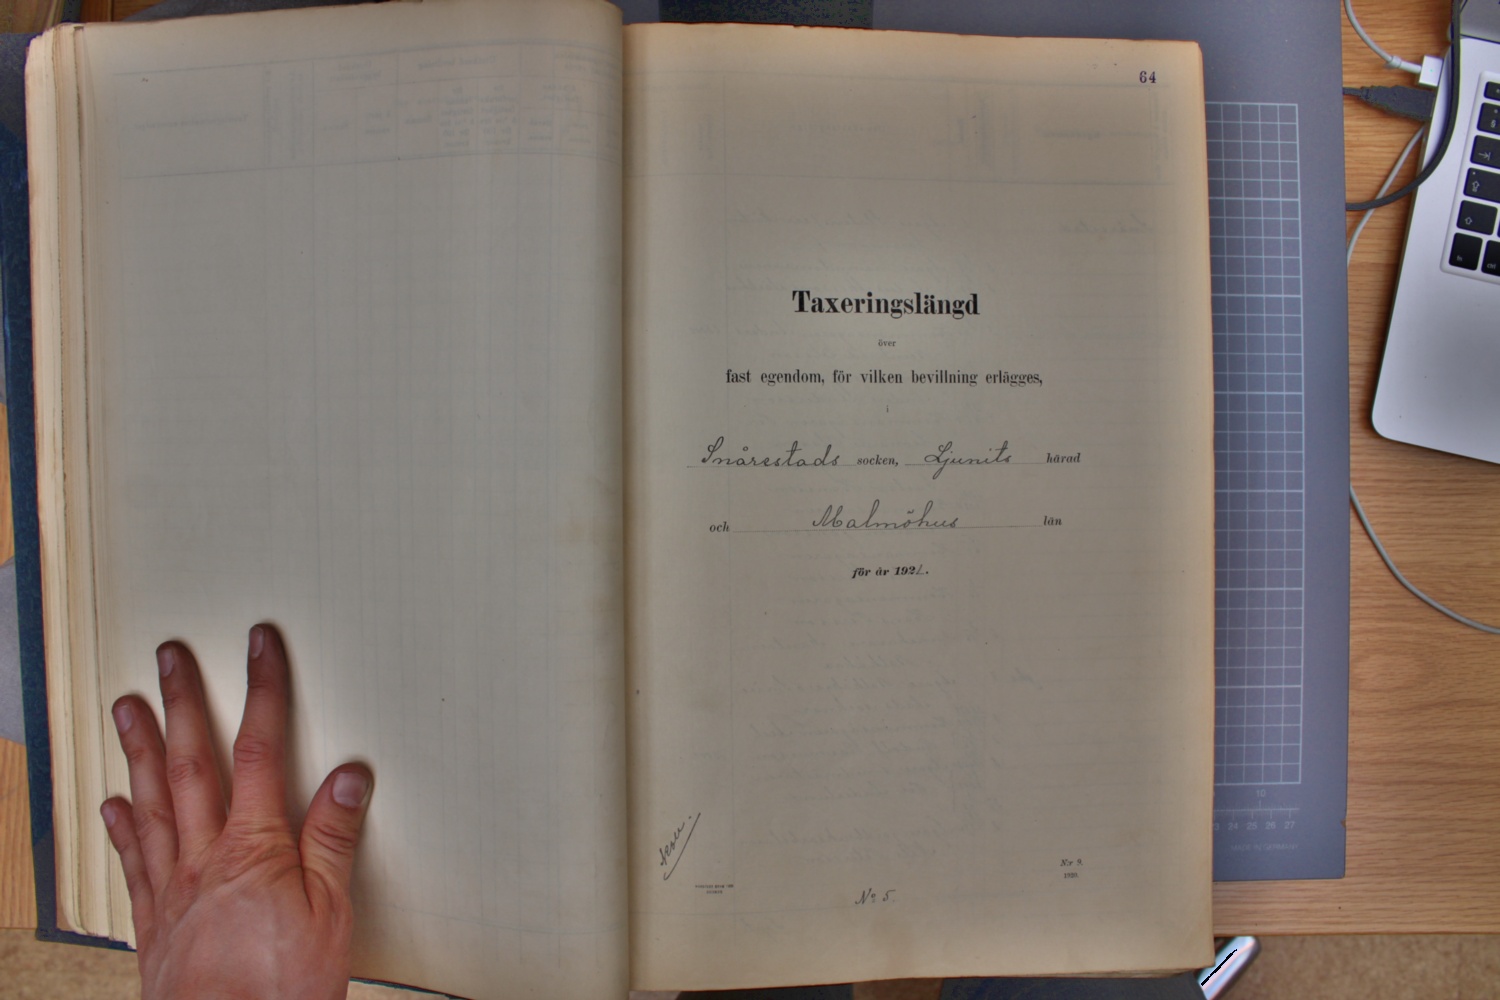 64
Taxeringslängd
över
fast egendom, för vilken bevillning erlägges,
i
Snårestads socken, Ljunits härad
och Malmöhus län
för år 1921.
N:r 9.
1920.
No 5.
10
24 25 26 27
MADE IN GERMANY